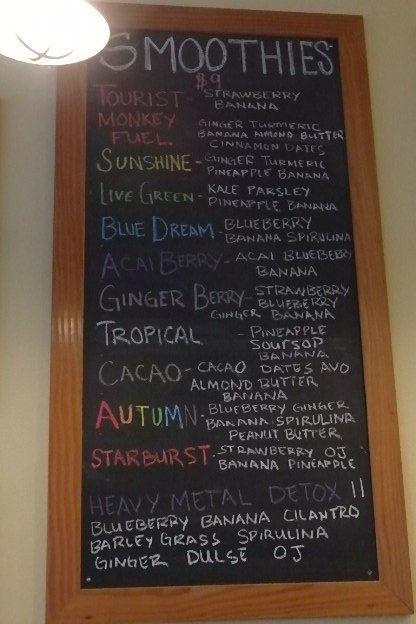 SMOOTHIES
$9
TOURIST - STRAWBERRY
BANANA
MONKEY FUEL
GINGER TURMERIC
BANANA ALMOND BUTTER
CINNAMON DATES
SUNSHINE - GINGER TURMERIC
PINEAPPLE BANANA
LIVE GREEN - KALE PARSLEY
PINEAPPLE BANANA
BLUE DREAM - BLUEBERRY
BANANA SPIRULINA
ACAI BERRY - ACAI BLUEBERRY
BANANA
GINGER BERRY - STRAWBERRY
BLUEBERRY
GINGER BANANA
TROPICAL - PINEAPPLE
SOURSOP
BANANA
CACAO - CACAO DATES AVO
ALMOND BUTTER
BANANA
AUTUMN - BLUEBERRY GINGER
BANANA SPIRULINA
PEANUT BUTTER
STARBURST - STRAWBERRY OJ
BANANA PINEAPPLE
HEAVY METAL DETOX 11
BLUEBERRY BANANA CILANTRO
BARLEY GRASS SPIRULINA
GINGER DULSE OJ